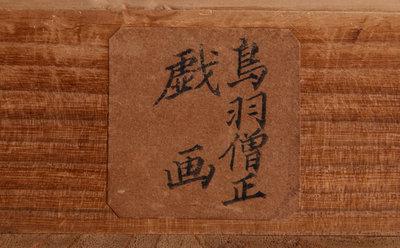 鳥羽僧正
戯画